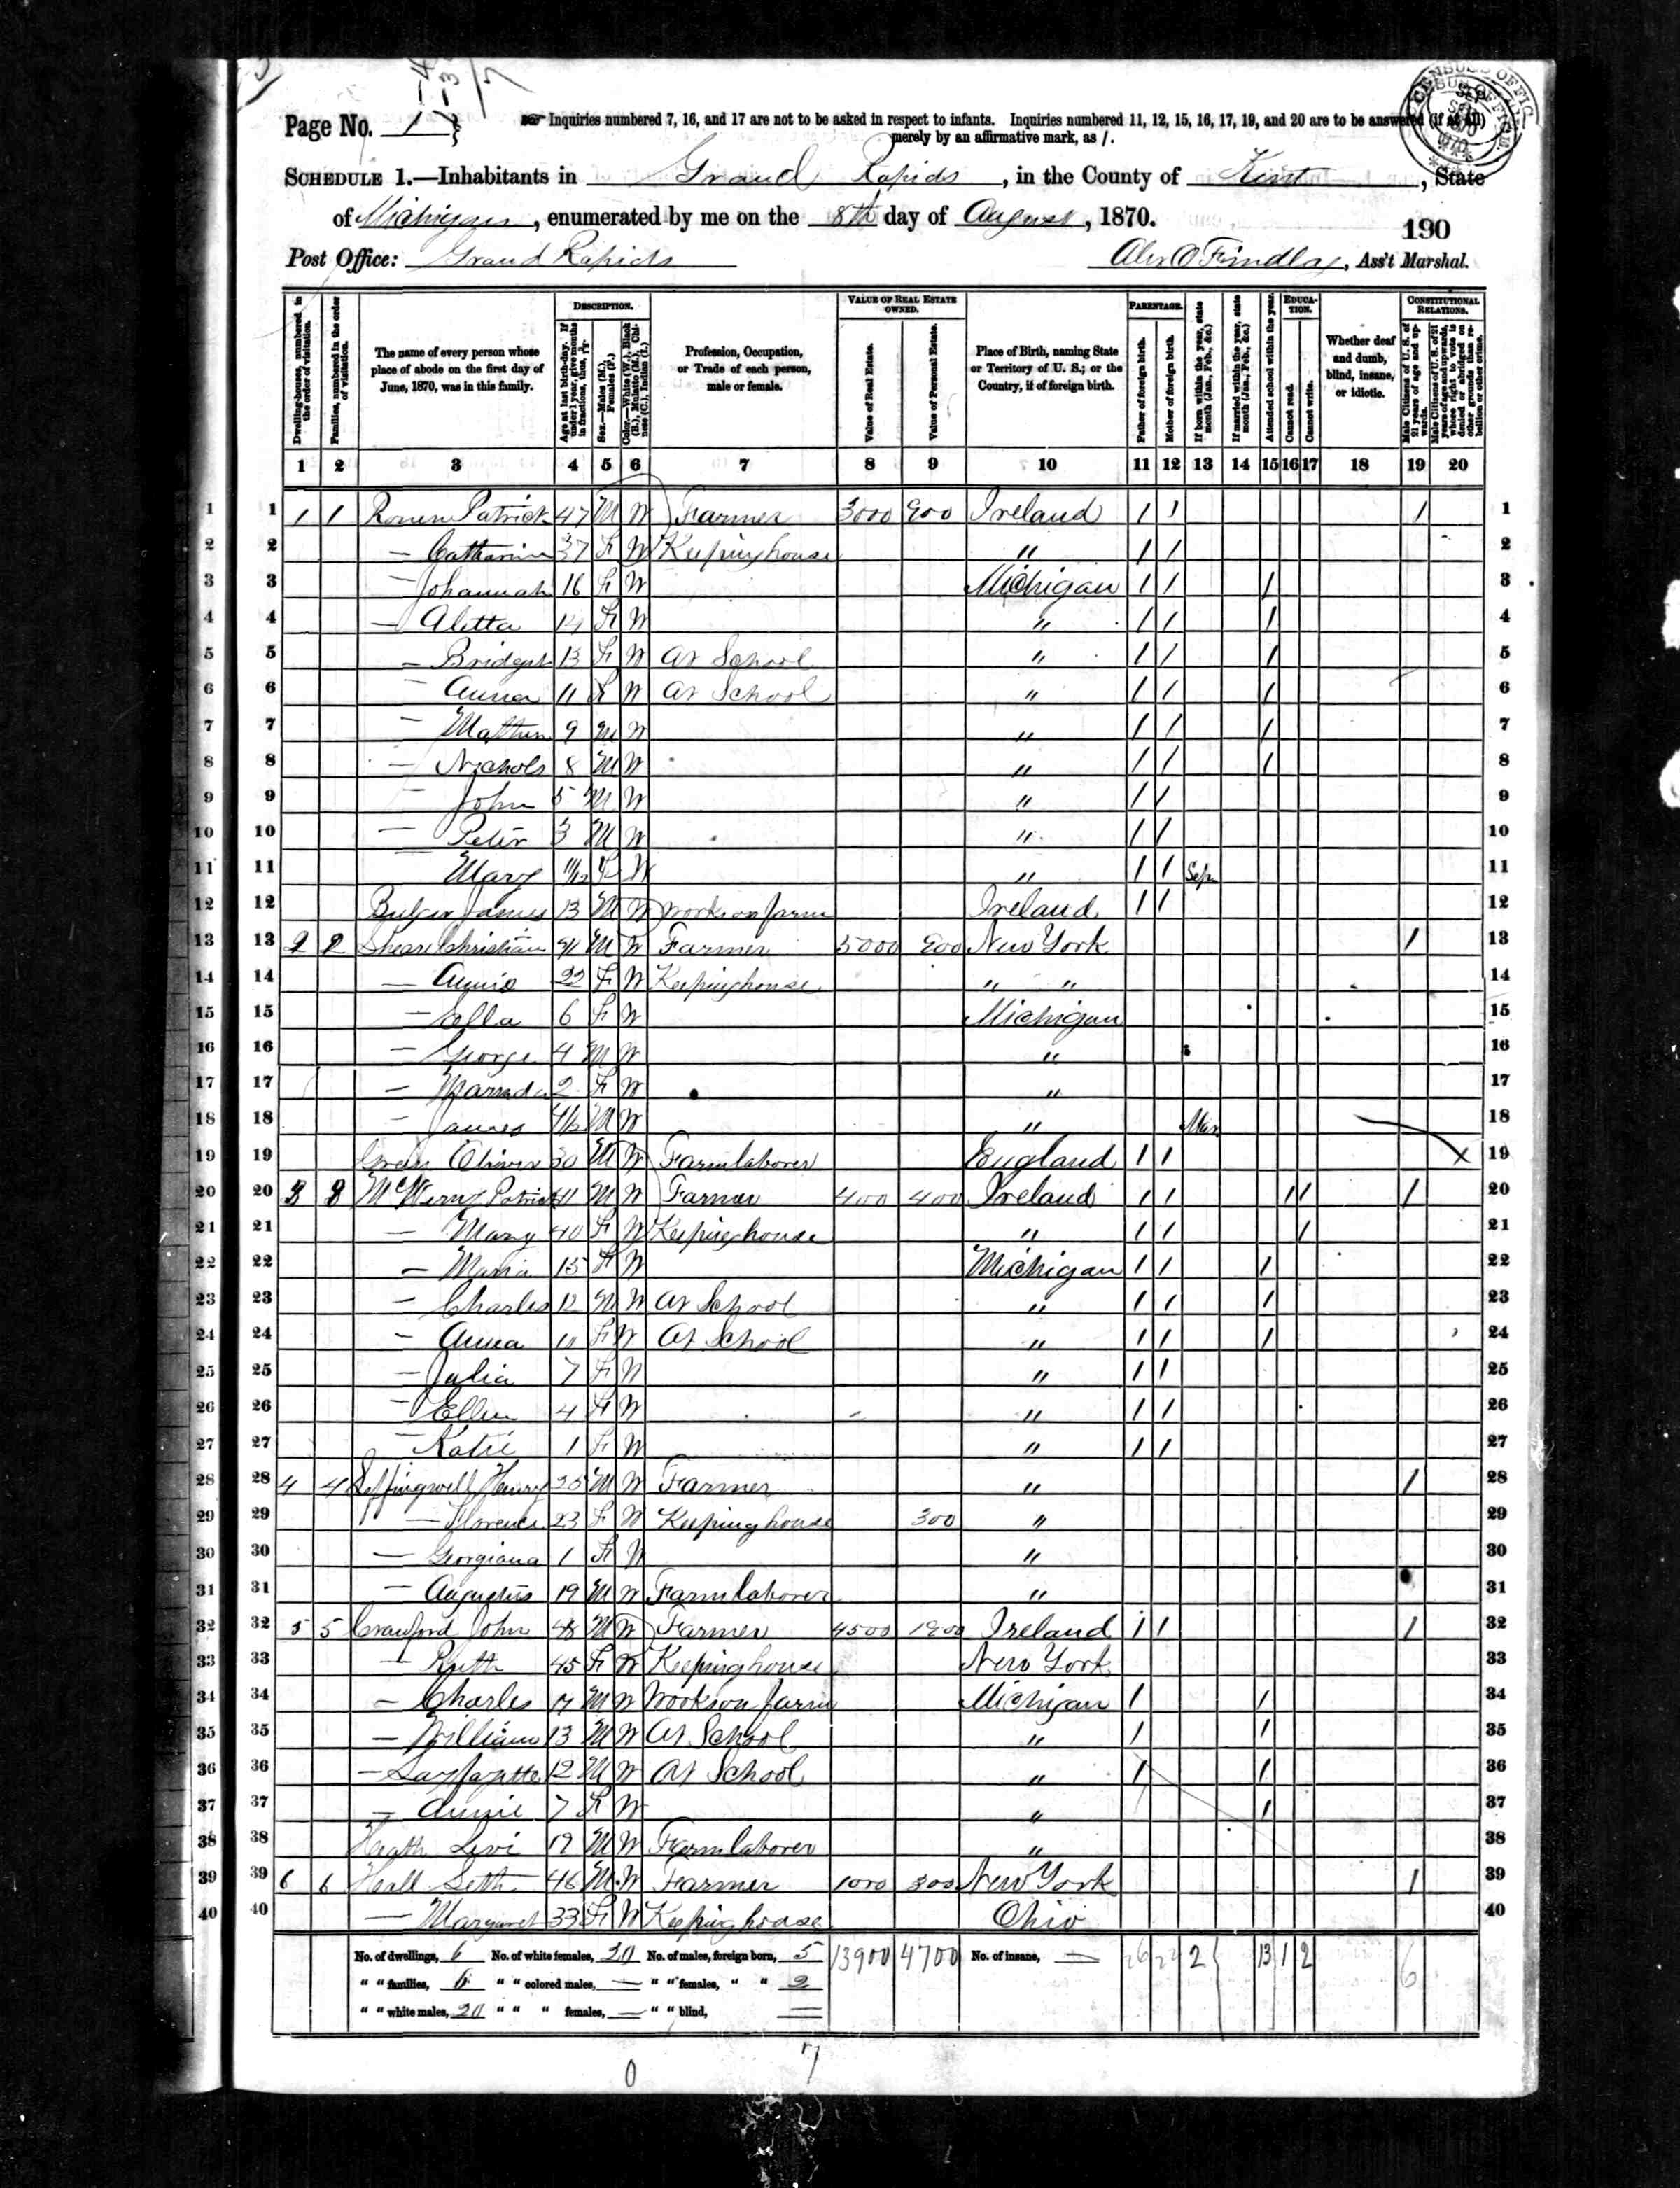 Page No. 1
Inquiries numbered 7, 16, and 17 are not to be asked in respect to infants. Inquiries numbered 11, 12, 15, 16, 17, 19, and 20 are to be answered (if at all)
merely by an affirmative mark, as /.
SCHEDULE 1.—Inhabitants in Grand Rapids, in the County of Kent, State
of Michigan, enumerated by me on the 8th day of August, 1870.
190
Post Office: Grand Rapids
Findlay, Ass't Marshal.
Dwelling-houses, numbered in the order of visitation.
Families, numbered in the order of visitation.
The name of every person whose place of abode on the first day of June, 1870, was in this family.
DESCRIPTION.
Age at last birth-day. If under 1 year, give months in fractions, thus, 3/12.
Sex.—Males (M.), Females (F.)
Color.—White (W.), Black (B.), Mulatto (M.), Chinese (C.), Indian (I.)
Profession, Occupation, or Trade of each person, male or female.
VALUE OF REAL ESTATE OWNED.
Value of Real Estate.
Value of Personal Estate.
Place of Birth, naming State or Territory of U. S.; or the Country, if of foreign birth.
PARENTAGE.
Father of foreign birth.
Mother of foreign birth.
If born within the year, state month (Jan., Feb., &c.)
If married within the year, state month (Jan., Feb., &c.)
Attended school within the year.
EDUCATION.
Cannot read.
Cannot write.
Whether deaf and dumb, blind, insane, or idiotic.
CONSTITUTIONAL RELATIONS.
Male Citizens of U. S. of 21 years of age and upwards.
Male Citizens of U. S. of 21 years of age and upwards, whose right to vote is denied or abridged on other grounds than rebellion or other crime.
1 2 3 4 5 6 7 8 9 10 11 12 13 14 15 16 17 18 19 20
1 1 1 Patrick 47 M W Farmer 3000 900 Ireland / / / 1
2 — Catharine 37 F W Keeping house " / / 2
3 — Johannah 16 F W Michigan / / / 3
4 — Aletta 14 F W " / / / 4
5 — Bridget 13 F W At School " / / / 5
6 — Anna 11 F W At School " / / / 6
7 — Mathew 9 M W " / / / 7
8 — Nichols 8 M W " / / / 8
9 — John 5 M W " / / 9
10 — Peter 3 M W " / / 10
11 Mary 11/12 F W " / / Sep 11
12 James 13 M W Works on farm Ireland / / 12
13 2 2 Christian 41 M W Farmer 5000 900 New York / 13
14 — Annie 22 F W Keeping house " " 14
15 — Ella 6 F W Michigan 15
16 — George 4 M W " 16
17 — 2 F W " 17
18 — James M W " Mar 18
19 Oliver 30 M W Farm laborer England / / 19
20 3 3 Patrick 41 M W Farmer 400 400 Ireland / / / / / 20
21 — Mary 40 F W Keeping house " / / / 21
22 — Maria 15 F W Michigan / / / 22
23 — Charles 12 M W At School " / / / 23
24 — Anna 10 F W At School " / / / 24
25 — Julia 7 F W " / / 25
26 — Ellen 4 F W " / / 26
27 — Katie 1 F W " / / 27
28 4 4 Leffingwell Henry 25 M W Farmer " / 28
29 — Florence 23 F W Keeping house 300 " 29
30 — Georgiana 1 F W " 30
31 — Augustus 19 M W Farm laborer " 31
32 5 5 Crawford John 48 M W Farmer 4500 Ireland / / / 32
33 — Ruth 45 F W Keeping house New York 33
34 — Charles 17 M W Works on farm Michigan / / 34
35 — William 13 M W At School " / / 35
36 — Layfayette 12 M W At School " / / 36
37 — Annie 7 F W " / 37
38 Heath Levi 19 M W Farm laborer " 38
39 6 6 Hall Seth 46 M W Farmer 1000 300 New York / 39
40 — Margaret 33 F W Keeping house Ohio 40
No. of dwellings, 6 No. of white females, 20 No. of males, foreign born, 5 13900 4700 No. of insane, — 2 13 1 2 6
" " families, 6 " " colored males, — " " females, " " 2
" " white males, 20 " " " females, — " " blind, —